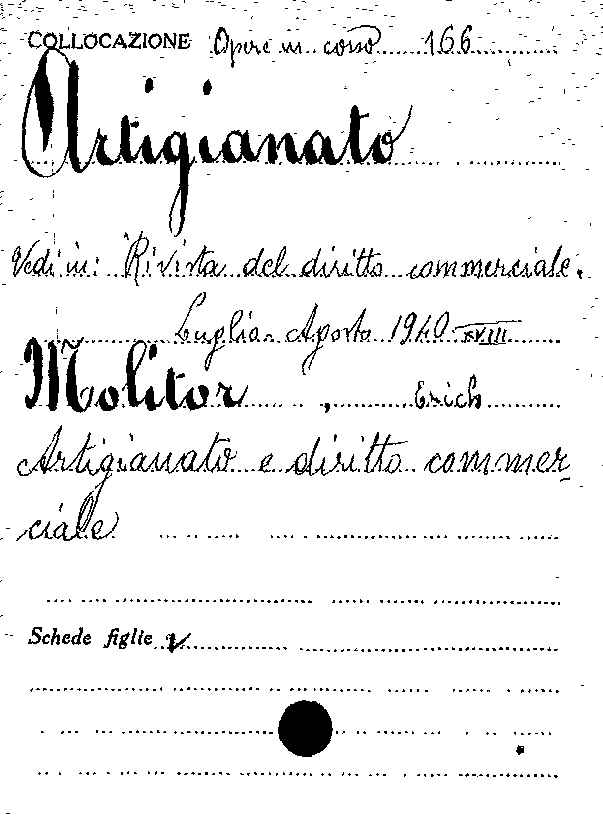 COLLOCAZIONE Opere in corso 166
Artigianato
Vedi in: Rivista del diritto commerciale.
Luglio-Agosto 1940 XVIII
Molitor, Erich
Artigianato e diritto commer-
ciale
Schede figlie